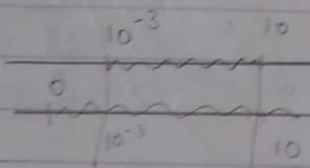 10⁻³ 10
0
10⁻³ 10